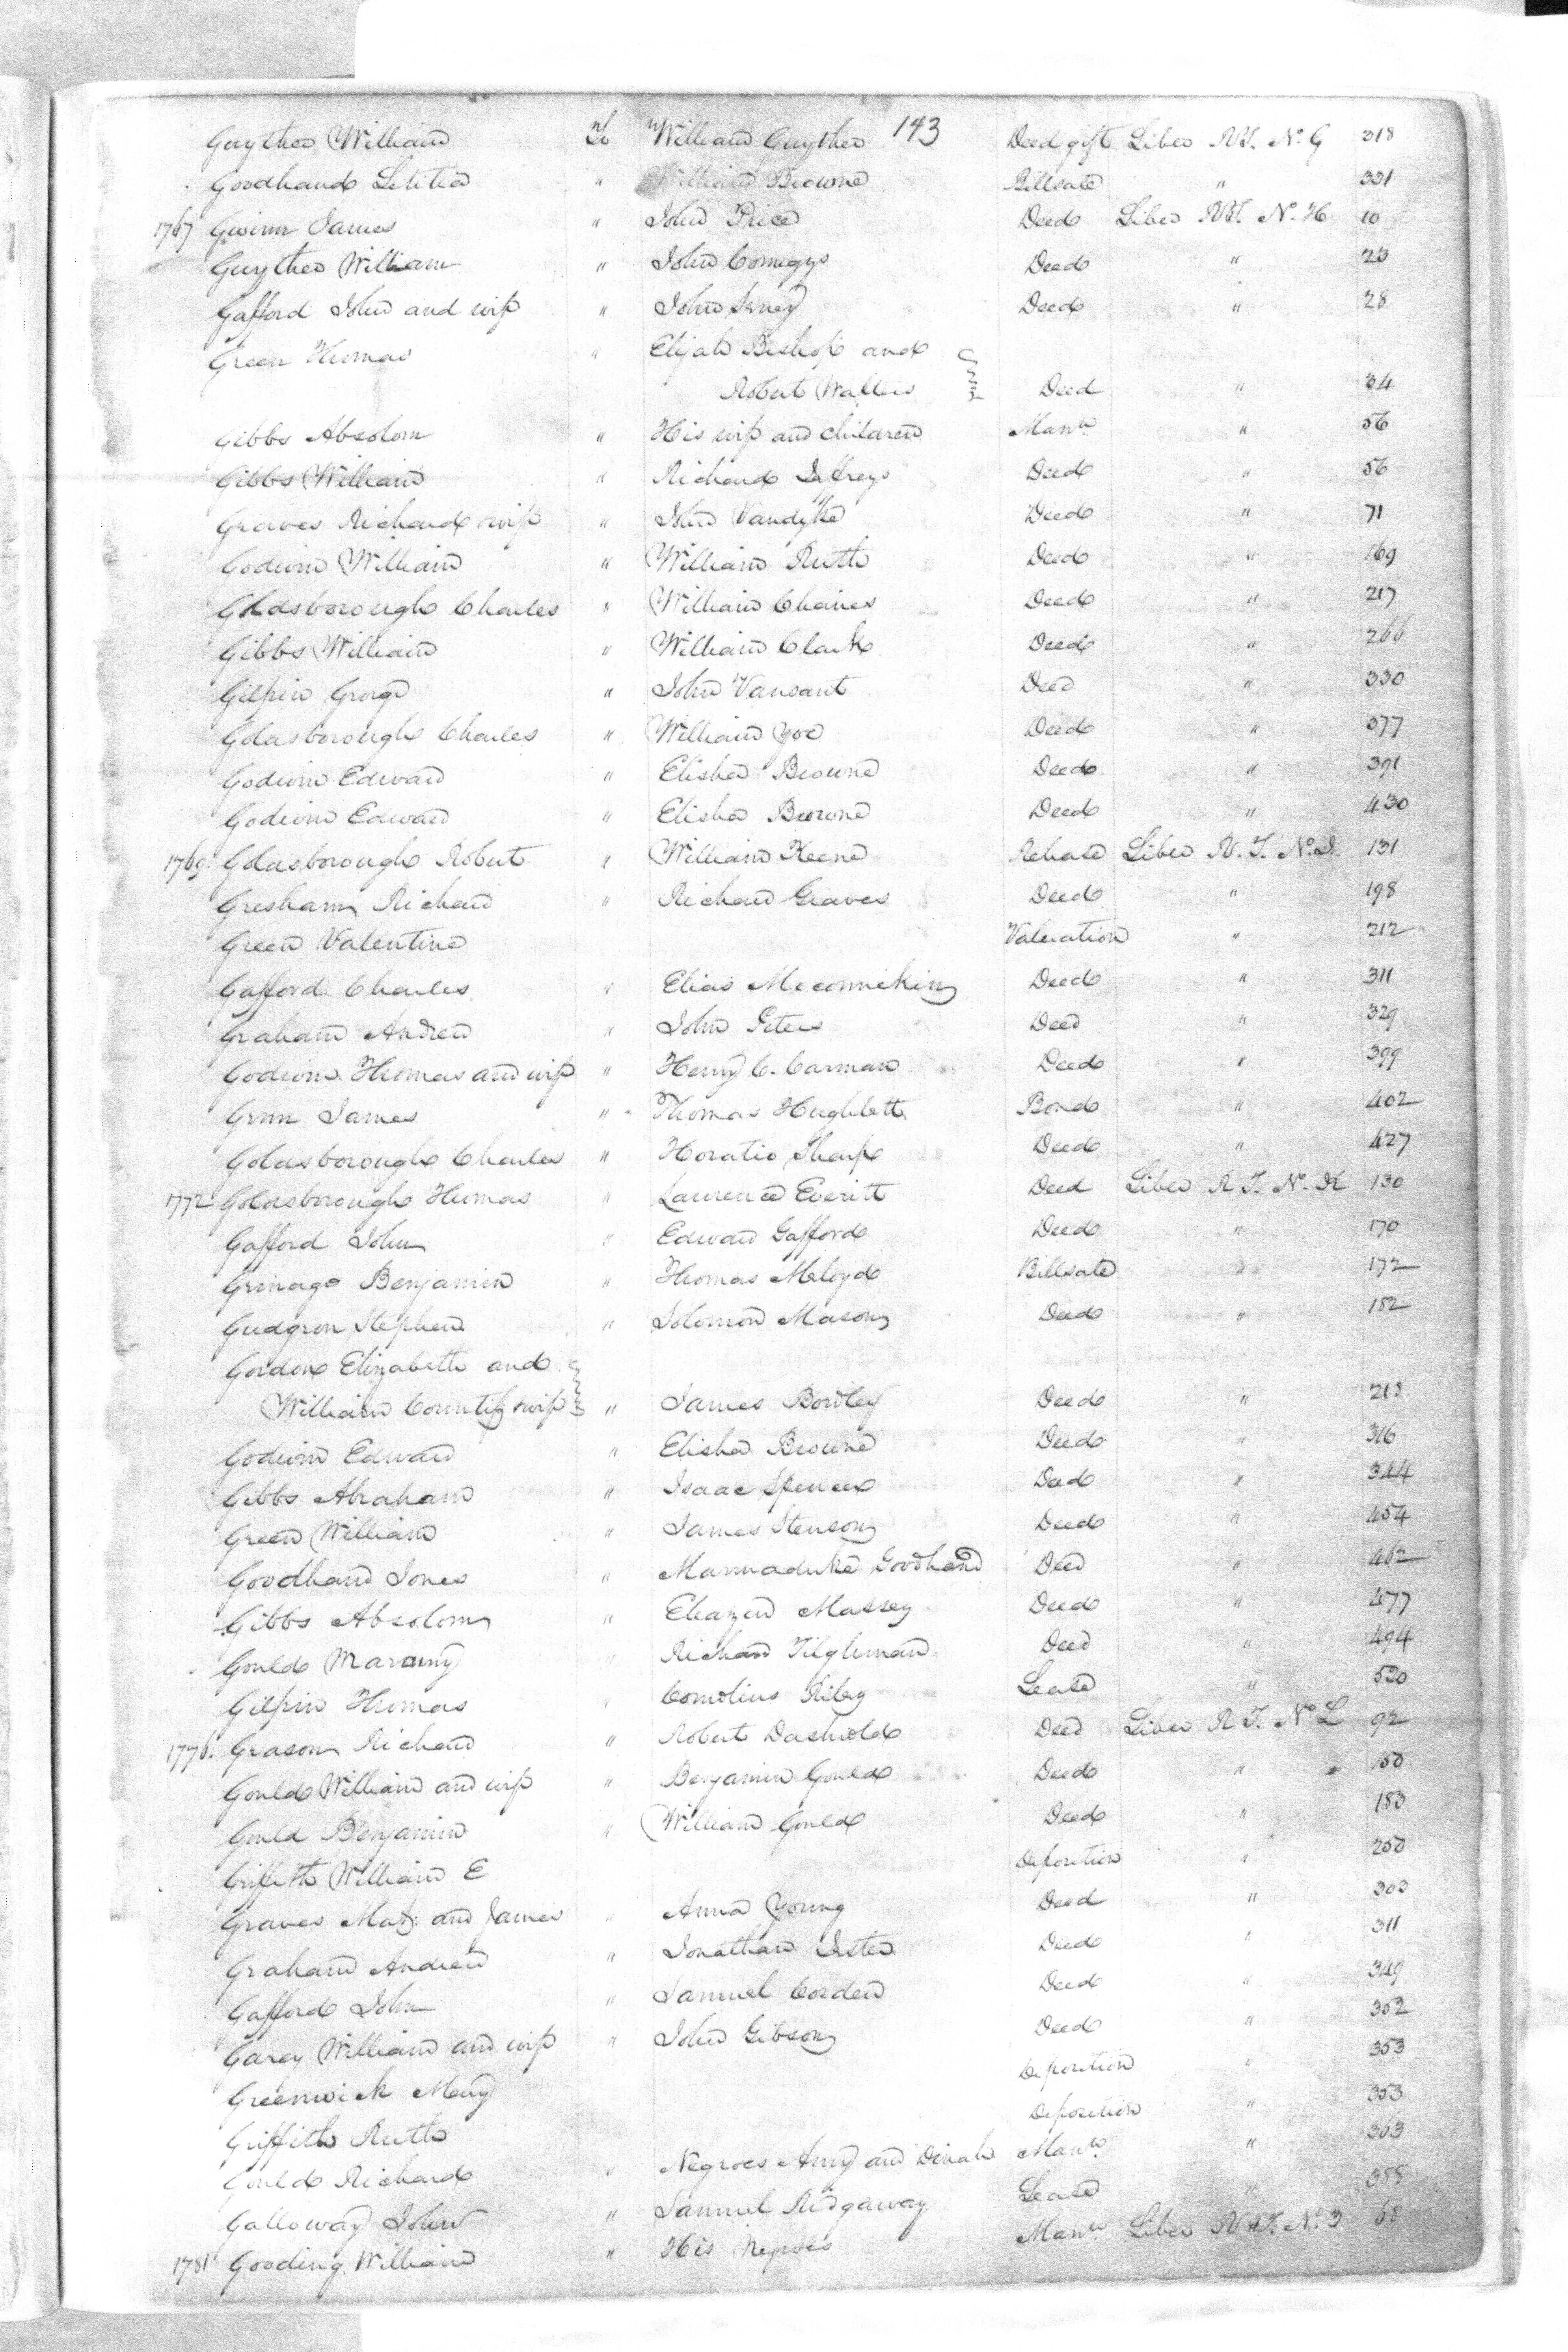 143
Guyther William To William Guyther Deed gift Liber RT. No. G 318
Goodhand Letitia " William Browne Billsale " 331
1767 Gwinn James " John Price Deed Liber RT. No. H 10
Guyther William " John Comegys Deed " 23
Gafford John and wife " John Seney Deed " 28
Green Thomas " Elijah Bishop and
Robert Walters Deed " 34
Gibbs Absolom " His wife and children Mann. " 56
Gibbs William " Richard Jaffreys Deed " 56
Graves Richard & wife " John Vandyke Deed " 71
Godwin William " William Ruth Deed " 169
Goldsborough Charles " William Chaires Deed " 217
Gibbs William " William Clark Deed " 266
Gilpin George " John Vansant Deed " 330
Goldsborough Charles " William Yoe Deed " 377
Godwin Edward " Elisha Browne Deed " 391
Godwin Edward " Elisha Browne Deed " 430
1769. Goldsborough Robert " William Keene Release Liber R. T. No. I. 131
Gresham Richard " Richard Graves Deed " 198
Green Valentine Valuation " 212
Gafford Charles " Elias Meconnikin Deed " 311
Graham Andrew " John Peters Deed " 329
Godwin Thomas and wife " Henry C. Carman Deed " 399
James " Thomas Hughlett Bond " 402
Goldsborough Charles " Horatio Sharp Deed " 427
1772 Goldsborough Thomas " Laurence Everitt Deed Liber R T. No. K 130
Gafford John " Edward Gafford Deed " 170
Grinage Benjamin " Thomas Meloyd Billsale " 172
Gudgeon Stephen " Solomon Mason Deed " 182
Gordon Elizabeth and
William & wife " James Bordley Deed " 218
Godwin Edward " Elisha Browne Deed " 316
Gibbs Abraham " Isaac Spencer Deed " 344
Green William " James Stenson Deed " 454
Goodhand Jones " Marmaduke Goodhand Deed " 462
Gibbs Absolom " Eleazer Massey Deed " 477
Gould " Richard Tilghman Deed " 494
Gilpin Thomas " Cornelius Riley Lease " 520
1776. Grason Richard " Robert Dashield Deed Liber R T. No L 92
Gould William and wife " Benjamin Gould Deed " 150
Gould Benjamin " William Gould Deed " 183
Griffith William E Deposition " 250
Graves Mat. and James " Anna Young Deed " 303
Graham Andrew " Jonathan Jester Deed " 311
Gafford John " Samuel Corden Deed " 349
Garey William and wife " John Gibson Deed " 352
Greenwick Mary Deposition " 353
Griffith Ruth Deposition " 353
Gould Richard " Negroes Amy and Dinah Mann. " 363
Galloway John " Samuel Ridgaway Lease " 388
1781 Gooding William " His Negroes Mann. Liber R T. No. 3 68